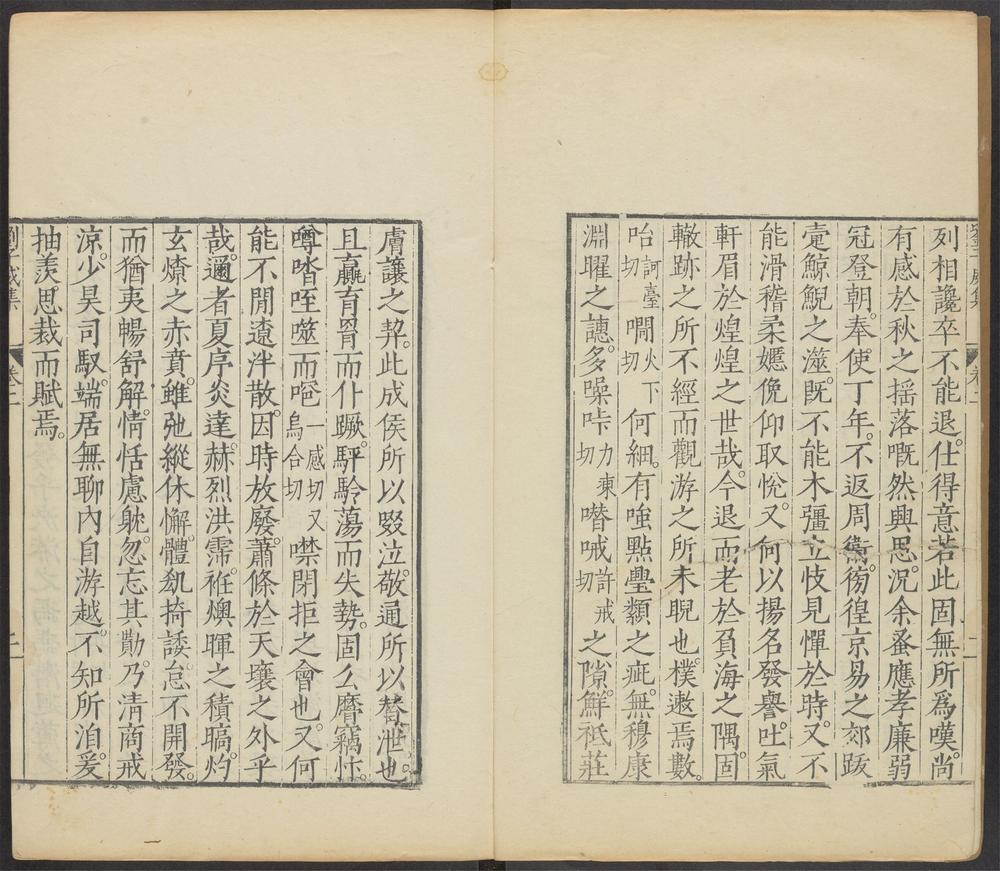 列相讒卒不能退。仕得意若此固無所爲嘆。尚
有感於秋之揺落嘅然興思。況余蚤應孝廉弱
冠登朝。奉使丁年。不返周衞。徬徨京易之郊跋
疐鯨鯢之澨。既不能木彊立忮見憚於時。又不
能滑稽柔嫕俛仰取悅。又何以揚名發譽。吐氣
軒眉於煌煌之世哉。今退而老於負海之隅。固
轍跡之所不經而觀游之所未睨也。樸遬焉數。
咍訶臺切㗿火下切何細。有嗤點璺纇之疵。無穆康
淵曜之譓。多噪㖦力東切嘈㖑許戒切之隙。鮮祗莊
膚讓之挈。此成侯所以啜泣。敬通所以榃泄。也。
且贏育胥而仆蹶。駍駖蕩而失勢。固么麿竊忭。
噂喀咥噬而唈一感切又烏合切噤閉拒之會也。又何
能不開遠泮散。因時放廢。蕭條於天壤之外乎
哉。邇者夏序炎達。赫烈洪霈。袳燠暉之積暠。灼
玄燎之赤賁。雖弛縱休懈。體亂掎諉。怠不開發。
而猶夷暢舒解。情恬慮躭。忽忘其勩。乃清商戒
涼。少昊司馭。端居無聊內自游越。不知所洎。爰
抽羨思裁而賦焉。
卷二
二
卷二
三